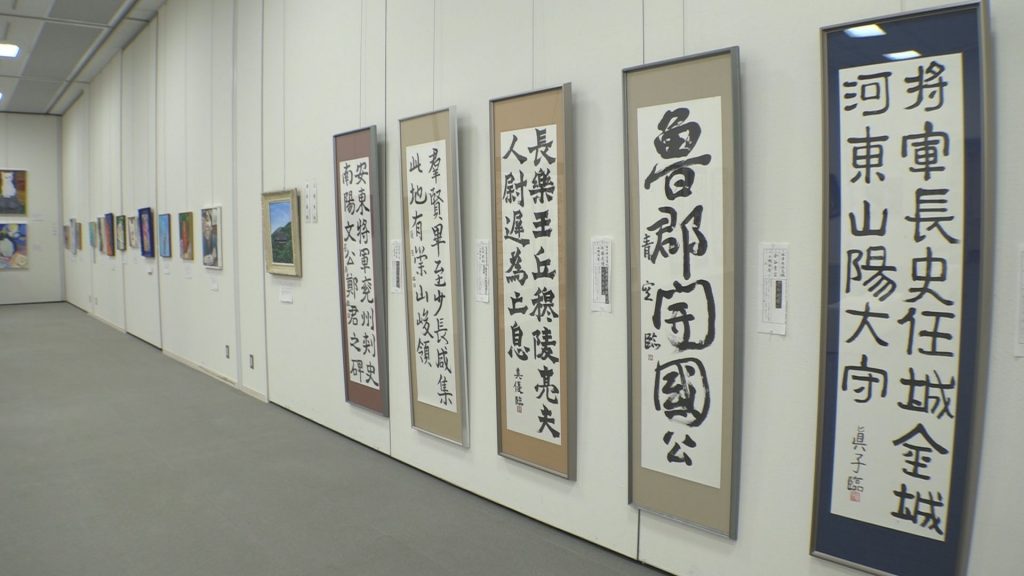 將軍長史任城金城
河東山陽大守
眞子臨
魯郡開國公
青空臨
長樂王丘穆陵亮夫
人尉遲為亡息
美優臨
羣賢畢至少長咸集
此地有崇山峻領
安東將軍兗州刺史
南陽文公鄭君之碑